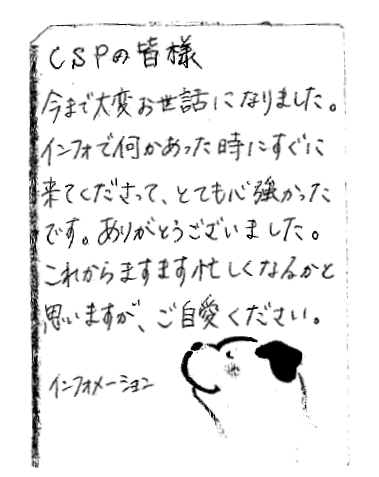 CSPの皆様
今まで大変お世話になりました。
インフォで何かあった時にすぐに
来てくださって、とても心強かった
です。ありがとうございました。
これからますます忙しくなるかと
思いますが、ご自愛ください。
インフォメーション